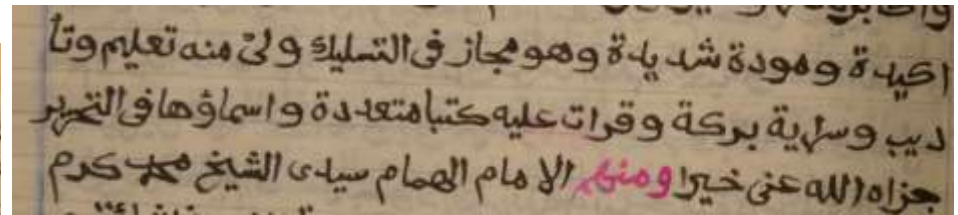 اكيدة ومودة شديدة وهو مجاز فى التسليك ولى منه تعليم وتا
ديب وسراية بركة وقرات عليه كتبا متعددة واسماؤها فى التحرير
جزاه الله عنى خيرا ومنهم الامام الهمام سيدى الشيخ محمد كرم